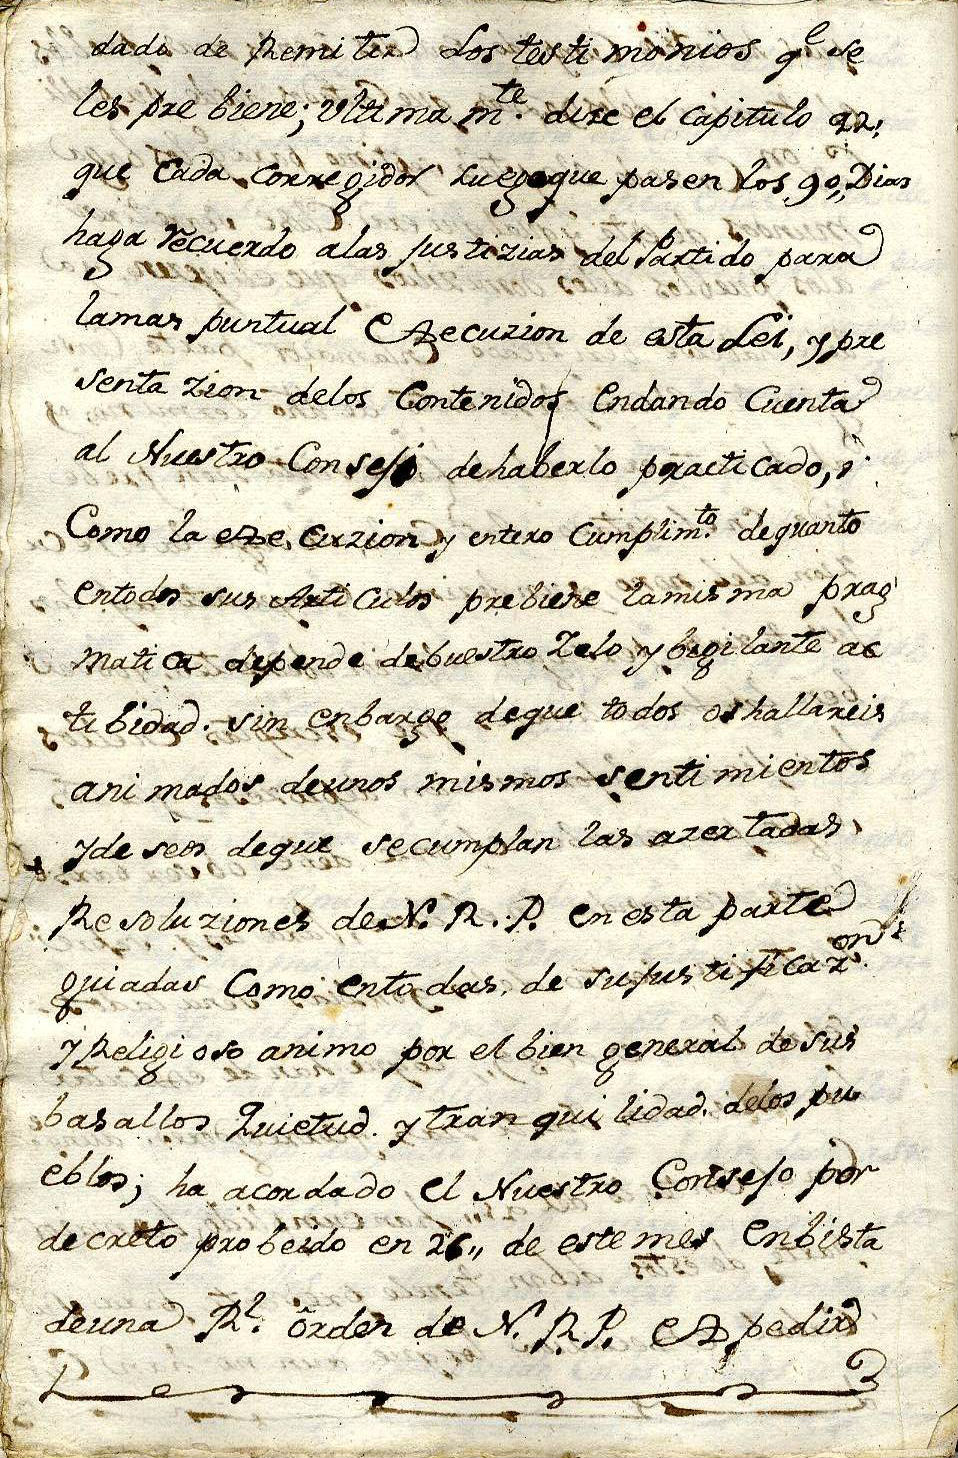 dado de Remiter los testimonios q.e se
les prebiene; Ultimam.te dize el Capitulo 22:
que Cada Corregidor luegoque pasen los 90,, Dias
haga recuerdo alas Justizias del Partido para
lamas puntual Execuzion de esta Lei, y pre
sentazion delos Contenidos endando Cuenta
al Nuestro Consejo dehaberlo practicado, i
Como la execuzion y entero Cumplim.to dequanto
entodos sus Articulos prebiene lamisma prag
matica depende debuestro Zelo y bigilante ac
tibidad. sin enbargo deque todos oshallareis
animados deunos mismos sentimientos
y deseos deque secumplan las azertadas
Resoluziones de N. R. P. en esta parte
guiadas Como entodas, de sujustificaz.on
y Religioso animo por el bien general de sus
basallos Quietud y tranquilidad delos pu
eblos; ha acordado el Nuestro Consejo por
decreto probeido en 26,, de este mes enbista
deuna R.l orden de N. R. P. expedir